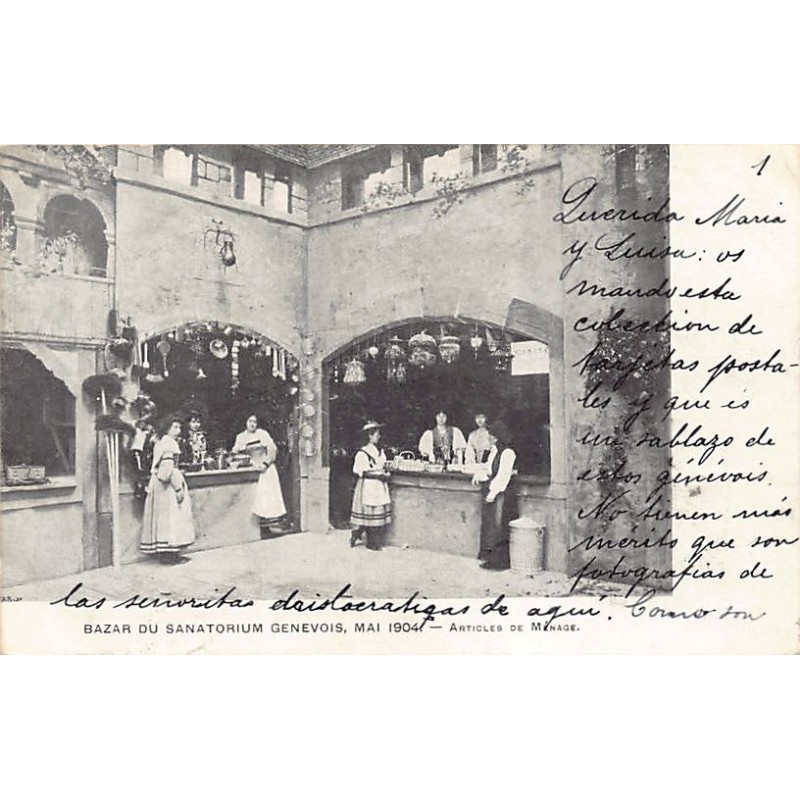 1
Querida Maria
y Luisa: os
mando esta
colección de
tarjetas posta-
les y que es
un sablazo de
estos génévois.
No tienen más
mérito que son
fotografias de
las señoritas aristocratigas de aquí. Como son
BAZAR DU SANATORIUM GENEVOIS, MAI 1904 — ARTICLES DE MÉNAGE.